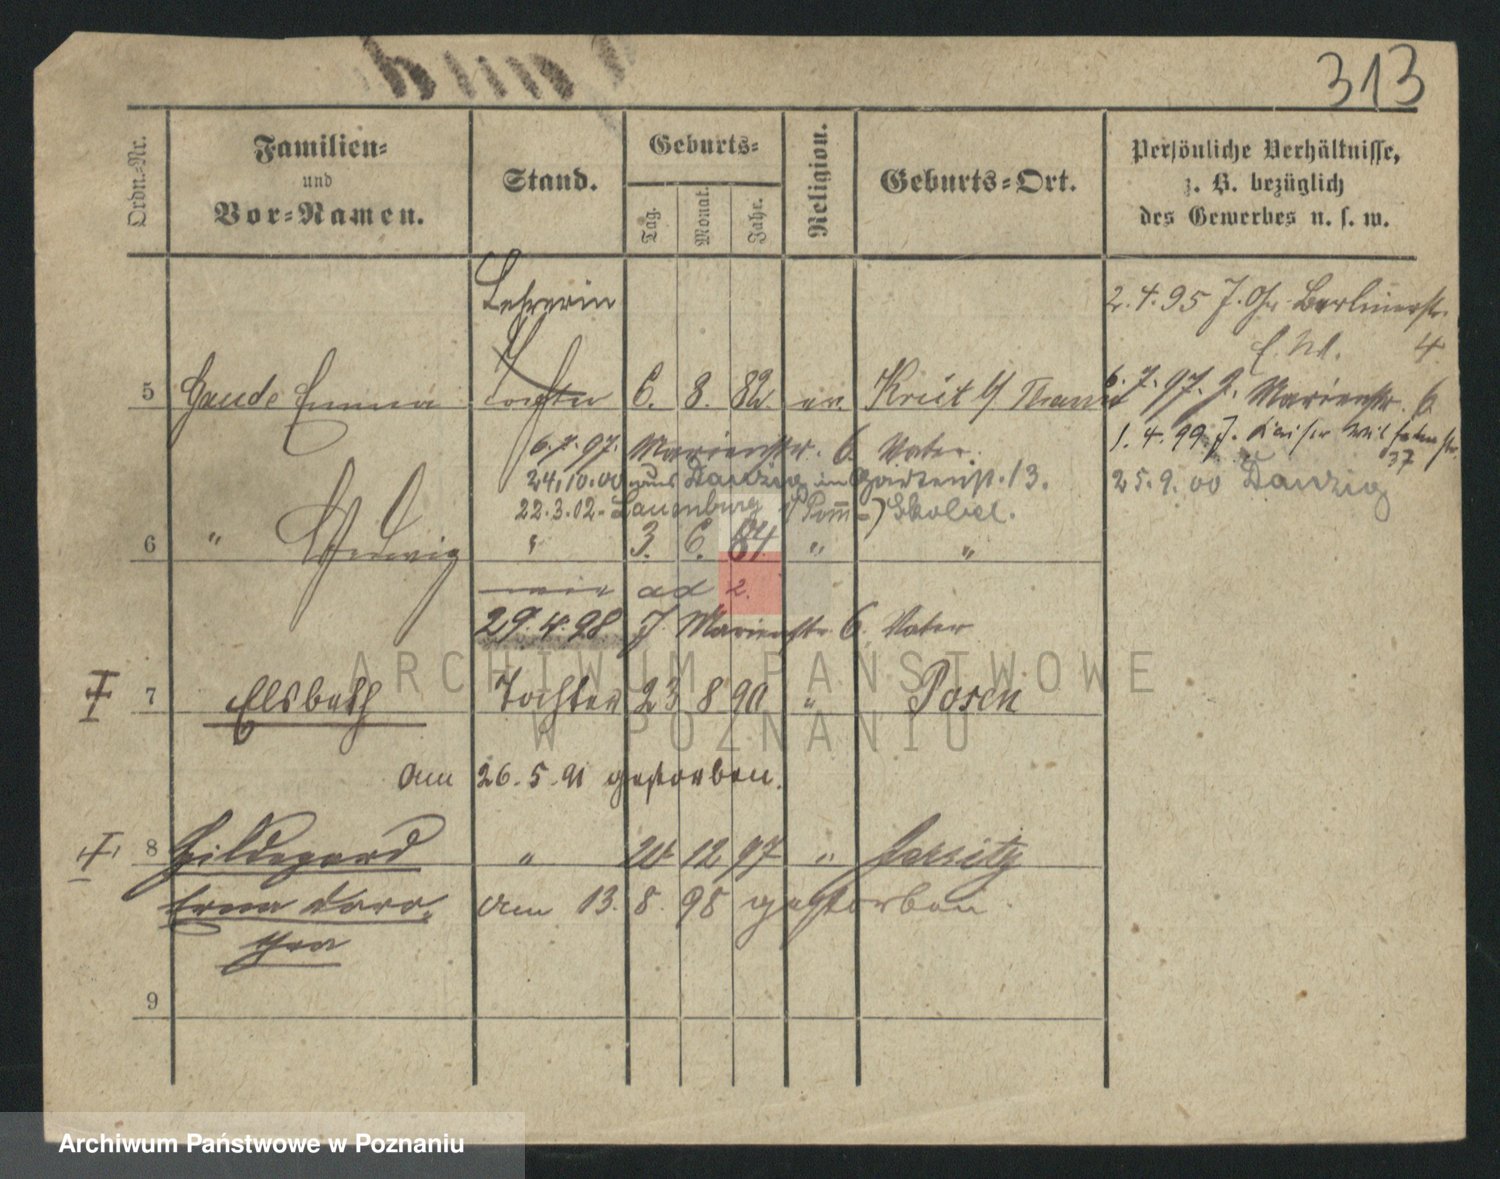 313
Ordn.-Nr.
Familien-
und
Vor-Namen.
Stand.
Geburts-
Tag.
Monat.
Jahr.
Religion.
Geburts-Ort.
Persönliche Verhältnisse,
z. B. bezüglich
des Gewerbes u. s. w.
Lehrerin
2. 4. 95 J. Berlinerstr.
4
5 Gaude Emma Tochter 6. 8. 82. ev.
6. 7. 97. J. Marienstr. 6
6. 7. 97. Marienstr. 6. Vater.
1. 4. 99. J. Kaiser Wilhelmstr.
37
24.10.00 aus Danzig in Gartenst. 13.
25. 9. 00 Danzig
22. 3. 02. Lauenburg (Pomm)
6 " Ludwig " 3. 6. 84. " "
wie ad 2.
29. 4. 98. J. Marienstr. 6. Vater
7 Elsbeth Tochter 23 8 90 " Posen
am 26. 5. 91 gestorben.
8 Hildegard " 12 97 " Jersitz
Erna Doro-
thea
am 13. 8. 98 gestorben.
9
ARCHIWUM PAŃSTWOWE
W POZNANIU
Archiwum Państwowe w Poznaniu